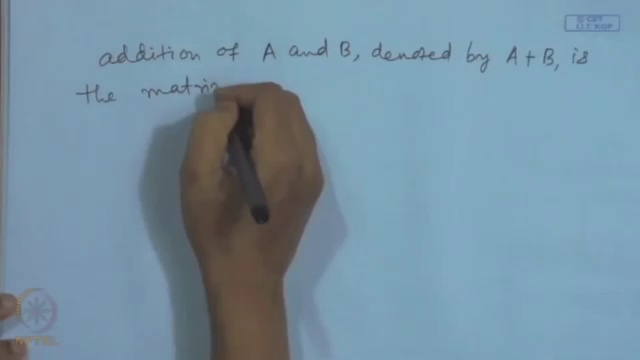 © CET
I.I.T. KGP
addition of A and B, denoted by A + B, is
the matrix
NPTEL